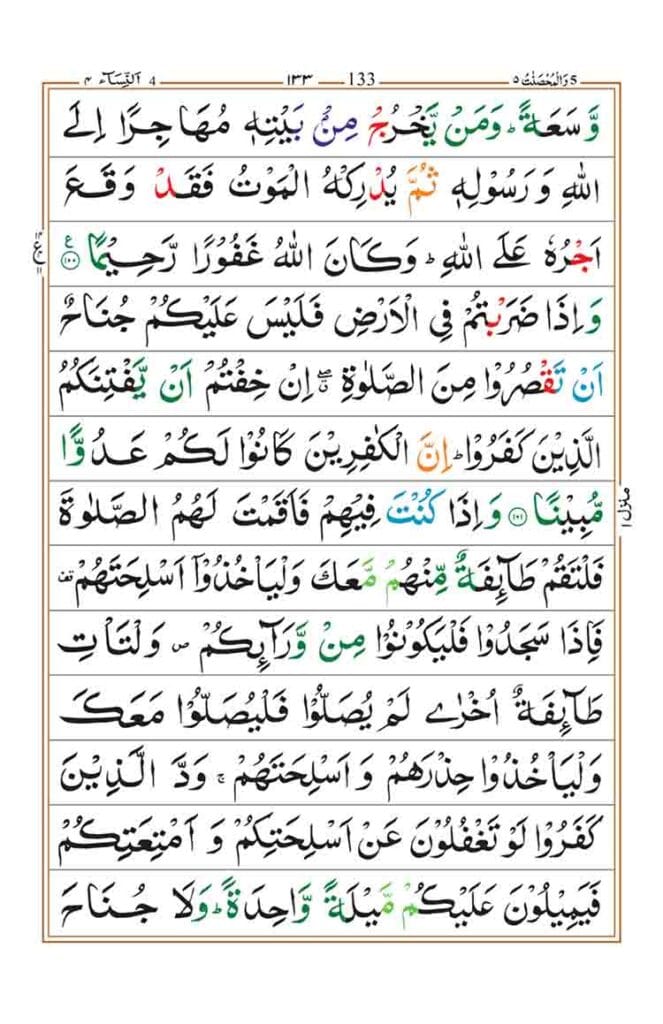 ٤ اَلنِّسَآء 4 ١٣٣ 133 وَالْمُحْصَنٰتُ ٥ 5
وَّسَعَةً ؕ وَمَنْ يَّخْرُجْ مِنْۢ بَيْتِهٖ مُهَاجِرًا اِلَى
اللّٰهِ وَرَسُوْلِهٖ ثُمَّ يُدْرِكْهُ الْمَوْتُ فَقَدْ وَقَعَ
اَجْرُهٗ عَلَى اللّٰهِ ؕ وَكَانَ اللّٰهُ غَفُوْرًا رَّحِيْمًا ۧ ١٠٠
وَاِذَا ضَرَبْتُمْ فِى الْاَرْضِ فَلَيْسَ عَلَيْكُمْ جُنَاحٌ
اَنْ تَقْصُرُوْا مِنَ الصَّلٰوةِ ۖ اِنْ خِفْتُمْ اَنْ يَّفْتِنَكُمُ
الَّذِيْنَ كَفَرُوْا ؕ اِنَّ الْكٰفِرِيْنَ كَانُوْا لَكُمْ عَدُوًّا
مُّبِيْنًا ١٠١ وَاِذَا كُنْتَ فِيْهِمْ فَاَقَمْتَ لَهُمُ الصَّلٰوةَ
فَلْتَقُمْ طَآئِفَةٌ مِّنْهُمْ مَّعَكَ وَلْيَاْخُذُوْۤا اَسْلِحَتَهُمْ قف
فَاِذَا سَجَدُوْا فَلْيَكُوْنُوْا مِنْ وَّرَآئِكُمْ ص وَلْتَاْتِ
طَآئِفَةٌ اُخْرٰى لَمْ يُصَلُّوْا فَلْيُصَلُّوْا مَعَكَ
وَلْيَاْخُذُوْا حِذْرَهُمْ وَاَسْلِحَتَهُمْ ۚ وَدَّ الَّذِيْنَ
كَفَرُوْا لَوْ تَغْفُلُوْنَ عَنْ اَسْلِحَتِكُمْ وَاَمْتِعَتِكُمْ
فَيَمِيْلُوْنَ عَلَيْكُمْ مَّيْلَةً وَّاحِدَةً ؕ وَلَا جُنَاحَ
منزل ١